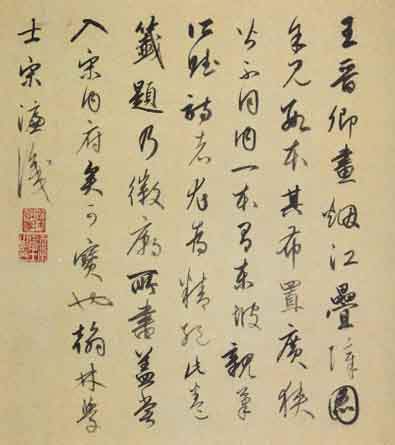 王晉卿畫煙江疊嶂圖
余見數本其布置廣狹
皆不同内一本有東坡親筆
賦詩者尤為精絕此卷
籤題乃徽廟所書蓋嘗
入宋内府矣可寶也翰林學
士宋濂識